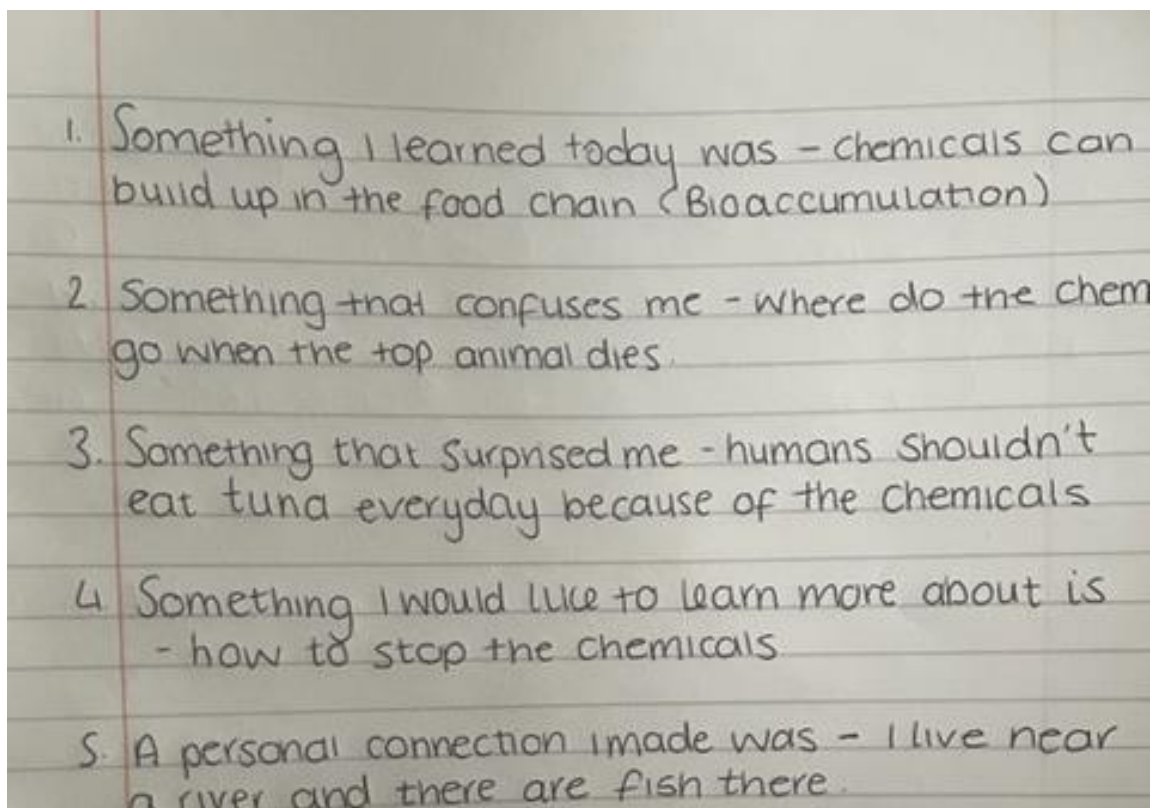 1. Something I learned today was - chemicals can
build up in the food chain (Bioaccumulation)
2. Something that confuses me - Where do the chem
go when the top animal dies.
3. Something that surprised me - humans shouldn't
eat tuna everyday because of the chemicals
4 Something I would like to learn more about is
- how to stop the chemicals
5. A personal connection I made was - I live near
a river and there are fish there.